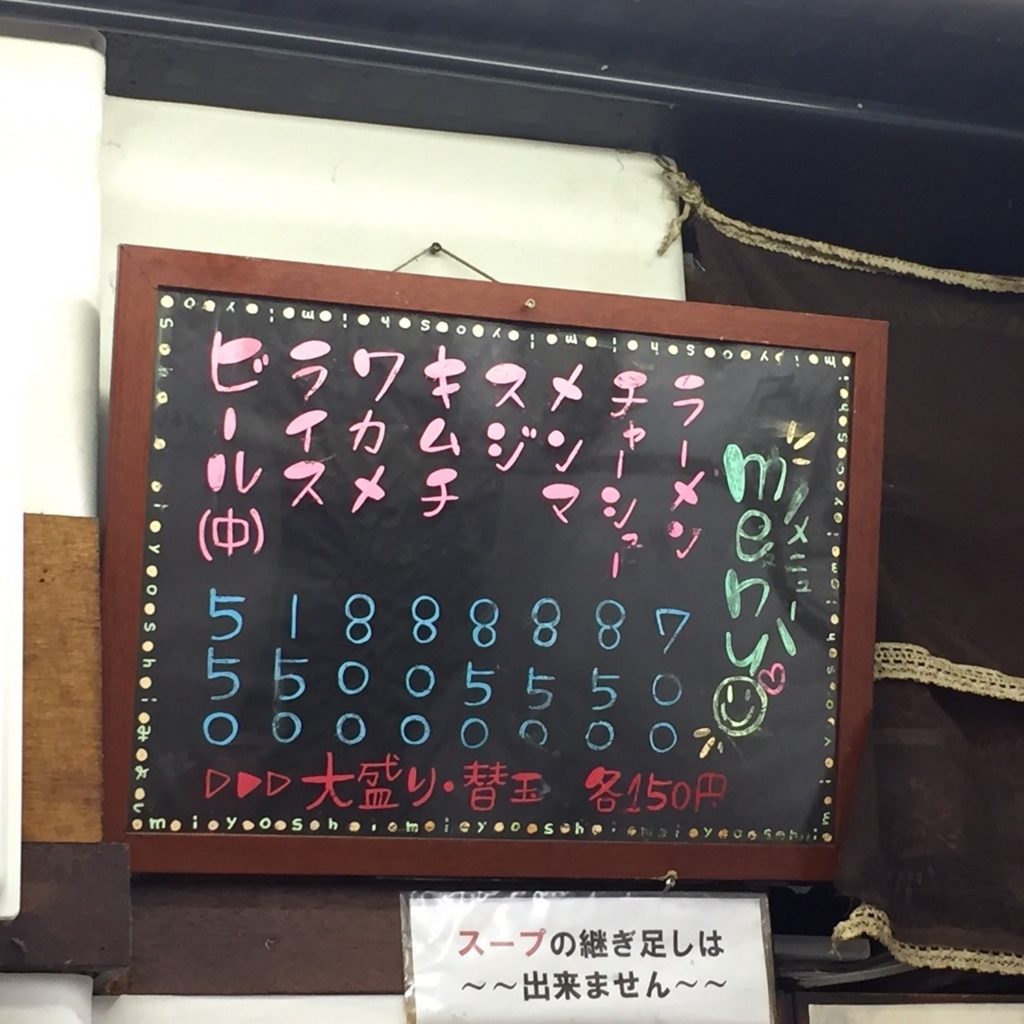 menu
メニュー
ラーメン 700
チャーシュー 850
メンマ 850
スジ 850
キムチ 800
ワカメ 800
ライス 150
ビール(中) 550
▷▶▷大盛り・替玉 各150円
スープの継ぎ足しは
～～出来ません～～